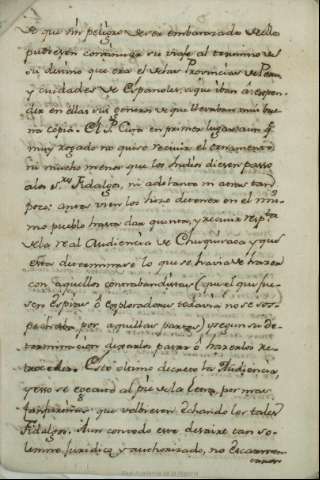 de que sin peligro de ser embarazado dello
pudiesen continuar su viaje al termino de
su destino que era el de las Provincias del Peru
y ciudades de Españoles, a que iban a expen-
der en ellas sus generos de que llevaban mui bue-
na copia. El P. Cura en primer lugar aun q.
muy rogado no quiso recivir el ornamento
ni mucho menos que los Indios diesen passo
a los s.res Fidalgos, ni adelante ni atras tam
poco: antes vien los hizo detener en el mis-
mo pueblo hasta dar quenta, y recivir resp.ta
de la real Audiencia de Chuquisaca y que
esta determinase lo que se havia de hazer
con aquellos contrabandistas (que el que fue-
sen Espias o exploradores todavia no se sos-
pechaba por aquellas partes) y segun su de-
terminacion dejarlos pasar o hazerlos re-
troceder. Esto ultimo decreto la Audiencia,
y esto se executó al pie de la letra por mas
que volviesen echando los tales
Fidalgos. Aun con todo este desaire tan so-
lemne, juridico, y authorizado, no escarmen-
Real Academia de la Historia